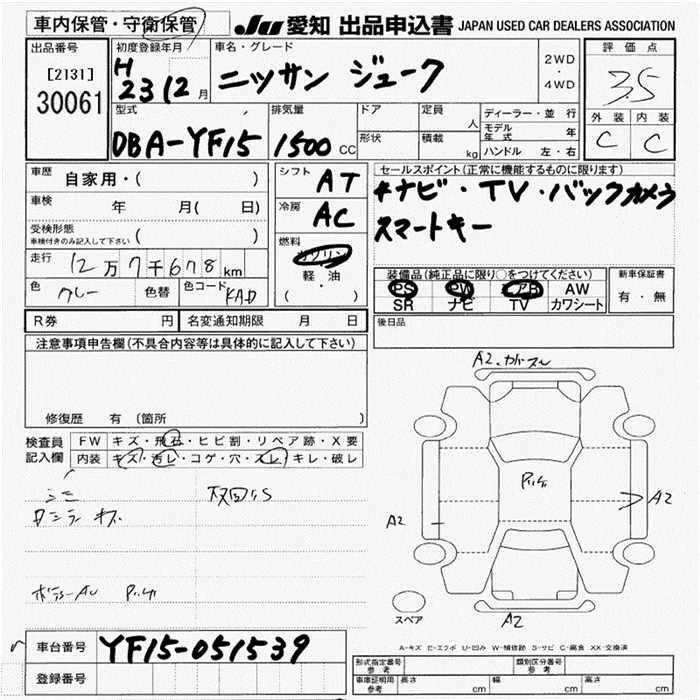 車内保管・守衛保管
JU 愛知 出品申込書 JAPAN USED CAR DEALERS ASSOCIATION
出品番号
[2131]
30061
初度登録年月
H
23 12 月
車名・グレード
ニッサン ジューク
2WD
・
4WD
評価点
3.5
外装 内装
C C
型式
DBA-YF15
排気量
1500 CC
ドア
形状
定員
人
積載
kg
ディーラー・並行
モデル年式 年
ハンドル 左・右
車歴 自家用・( )
車検 年 月( 日)
受検形態
車検付きのみ記入して下さい ( )
走行 12万7千678 km
色 グレー 色替 色コード KAD
シフト AT
冷房 AC
燃料
ガソリン
軽・油
( )
セールスポイント(正常に機能するものに限ります)
ナビ・TV・バックカメラ
スマートキー
装備品(純正品に限り○をつけてください)
PS PW エアB AW
SR ナビ TV カワシート
新車保証書
有・無
R券 円 名変通知期限 月 日
後日品
注意事項申告欄(不具合内容等は具体的に記入して下さい)
修復歴 有 〔箇所 〕
検査員記入欄
FW キズ・飛石・ヒビ割・リペア跡・X要
内装 キズ・汚レ・コゲ・穴・スレ・キレ・破レ
A2
A2
A2
A2
スペア
A-キズ E-エクボ U-凹み W-補修跡 S-サビ C-腐食 XX-交換済
車台番号 YF15-051539
登録番号
形式指定番号 参考
類別区分番号 参考
車庫証明用 参考 長さ cm 幅 cm 高さ cm